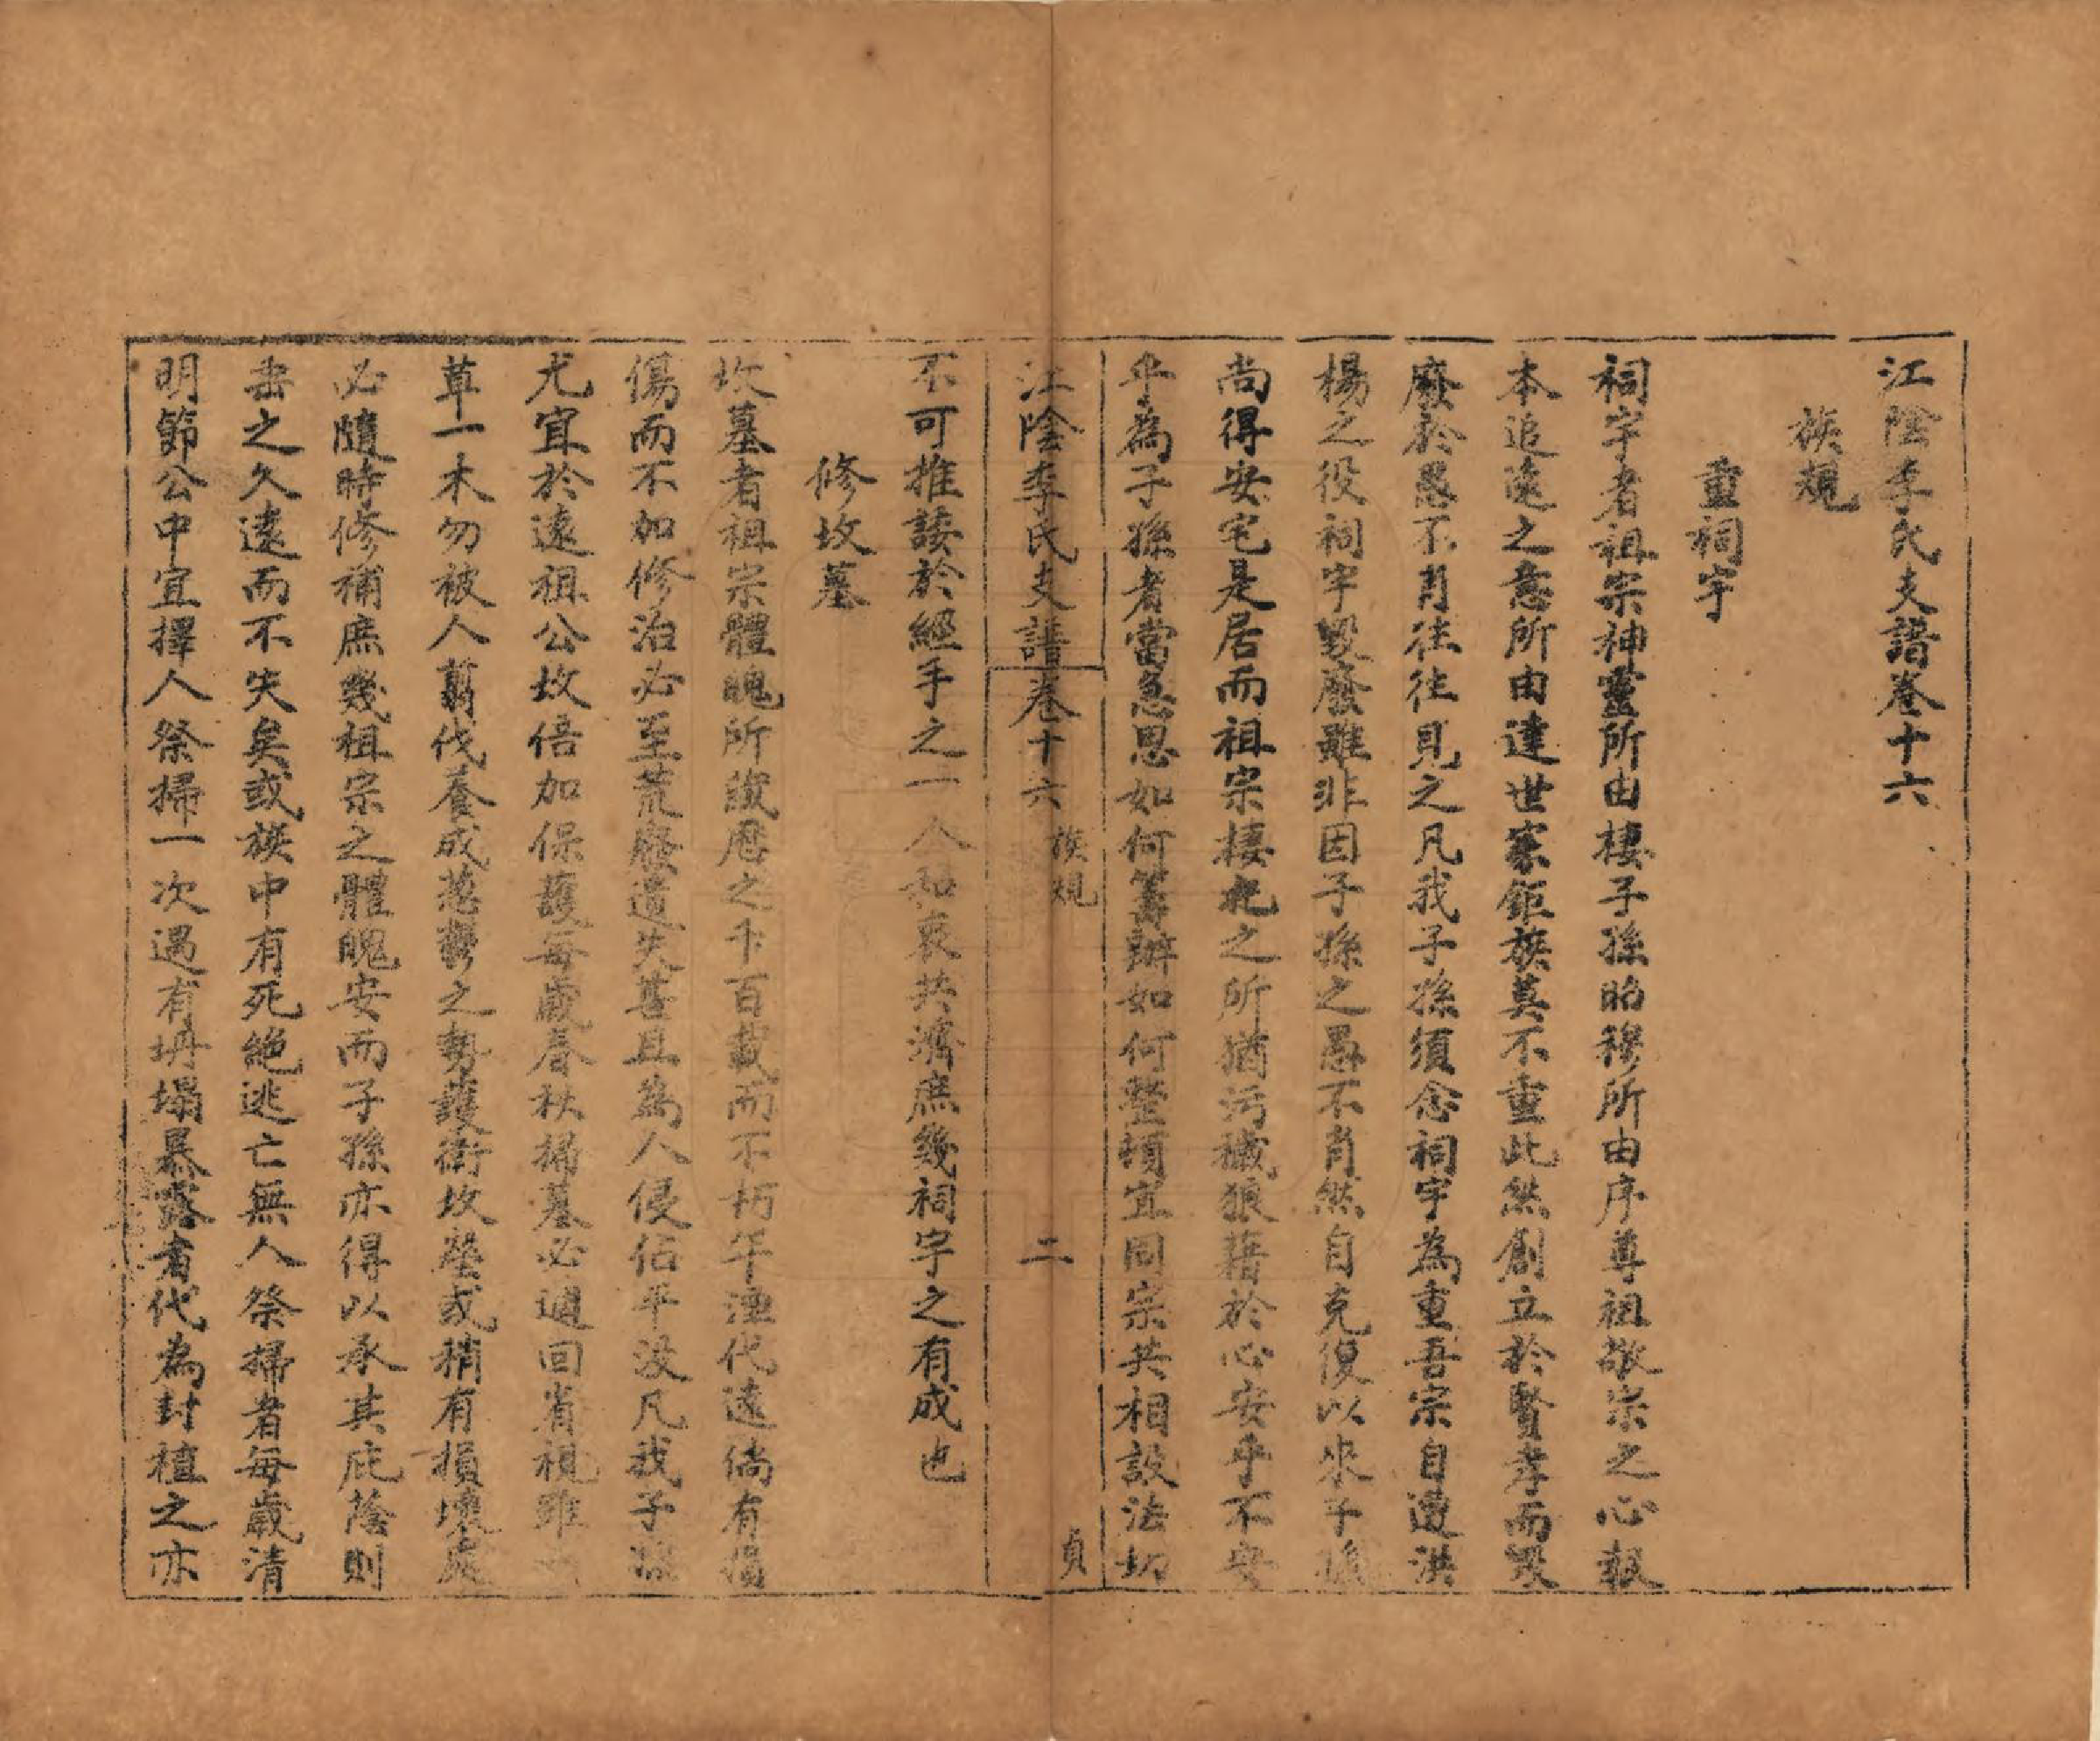 江陰李氏支譜卷十六
族規
重祠宇
祠宇者祖宗神靈所由棲子孫昭穆所由序尊祖敬宗之心報
本追遠之意所由達世家鉅族莫不重此然創立於賢孝而毀
廢於愚不肖往往見之凡我子孫須念祠宇為重吾宗自遭洪
楊之役祠宇毀廢雖非因子孫之愚不肖然自克復以來子孫
尚得安宅是居而祖宗棲托之所猶污穢狼藉於心安乎不安
乎為子孫者當急思如何籌辦如何整頓宜同宗共相設法切
江陰李氏支譜卷十六 族規 二 貞
不可推諉於經手之一人和衷共濟庶幾祠宇之有成也
修坟墓
坟墓者祖宗體魄所藏歷之千百載而不朽年湮代遠倘有損
傷而不加修治必至荒廢遺失甚且為人侵佔平沒凡我子孫
尤宜於遠祖公坟倍加保護每歲春秋掃墓必週回省視雖
草一木勿被人翦伐養成葱鬱之勢護衛坟塋或稍有損壞處
必隨時修補庶幾祖宗之體魄安而子孫亦得以承其庇蔭則
垂之久遠而不失矣或族中有死絕逃亡無人祭掃者每歲清
明節公中宜擇人祭掃一次遇有坍塌暴露者代為封植之亦